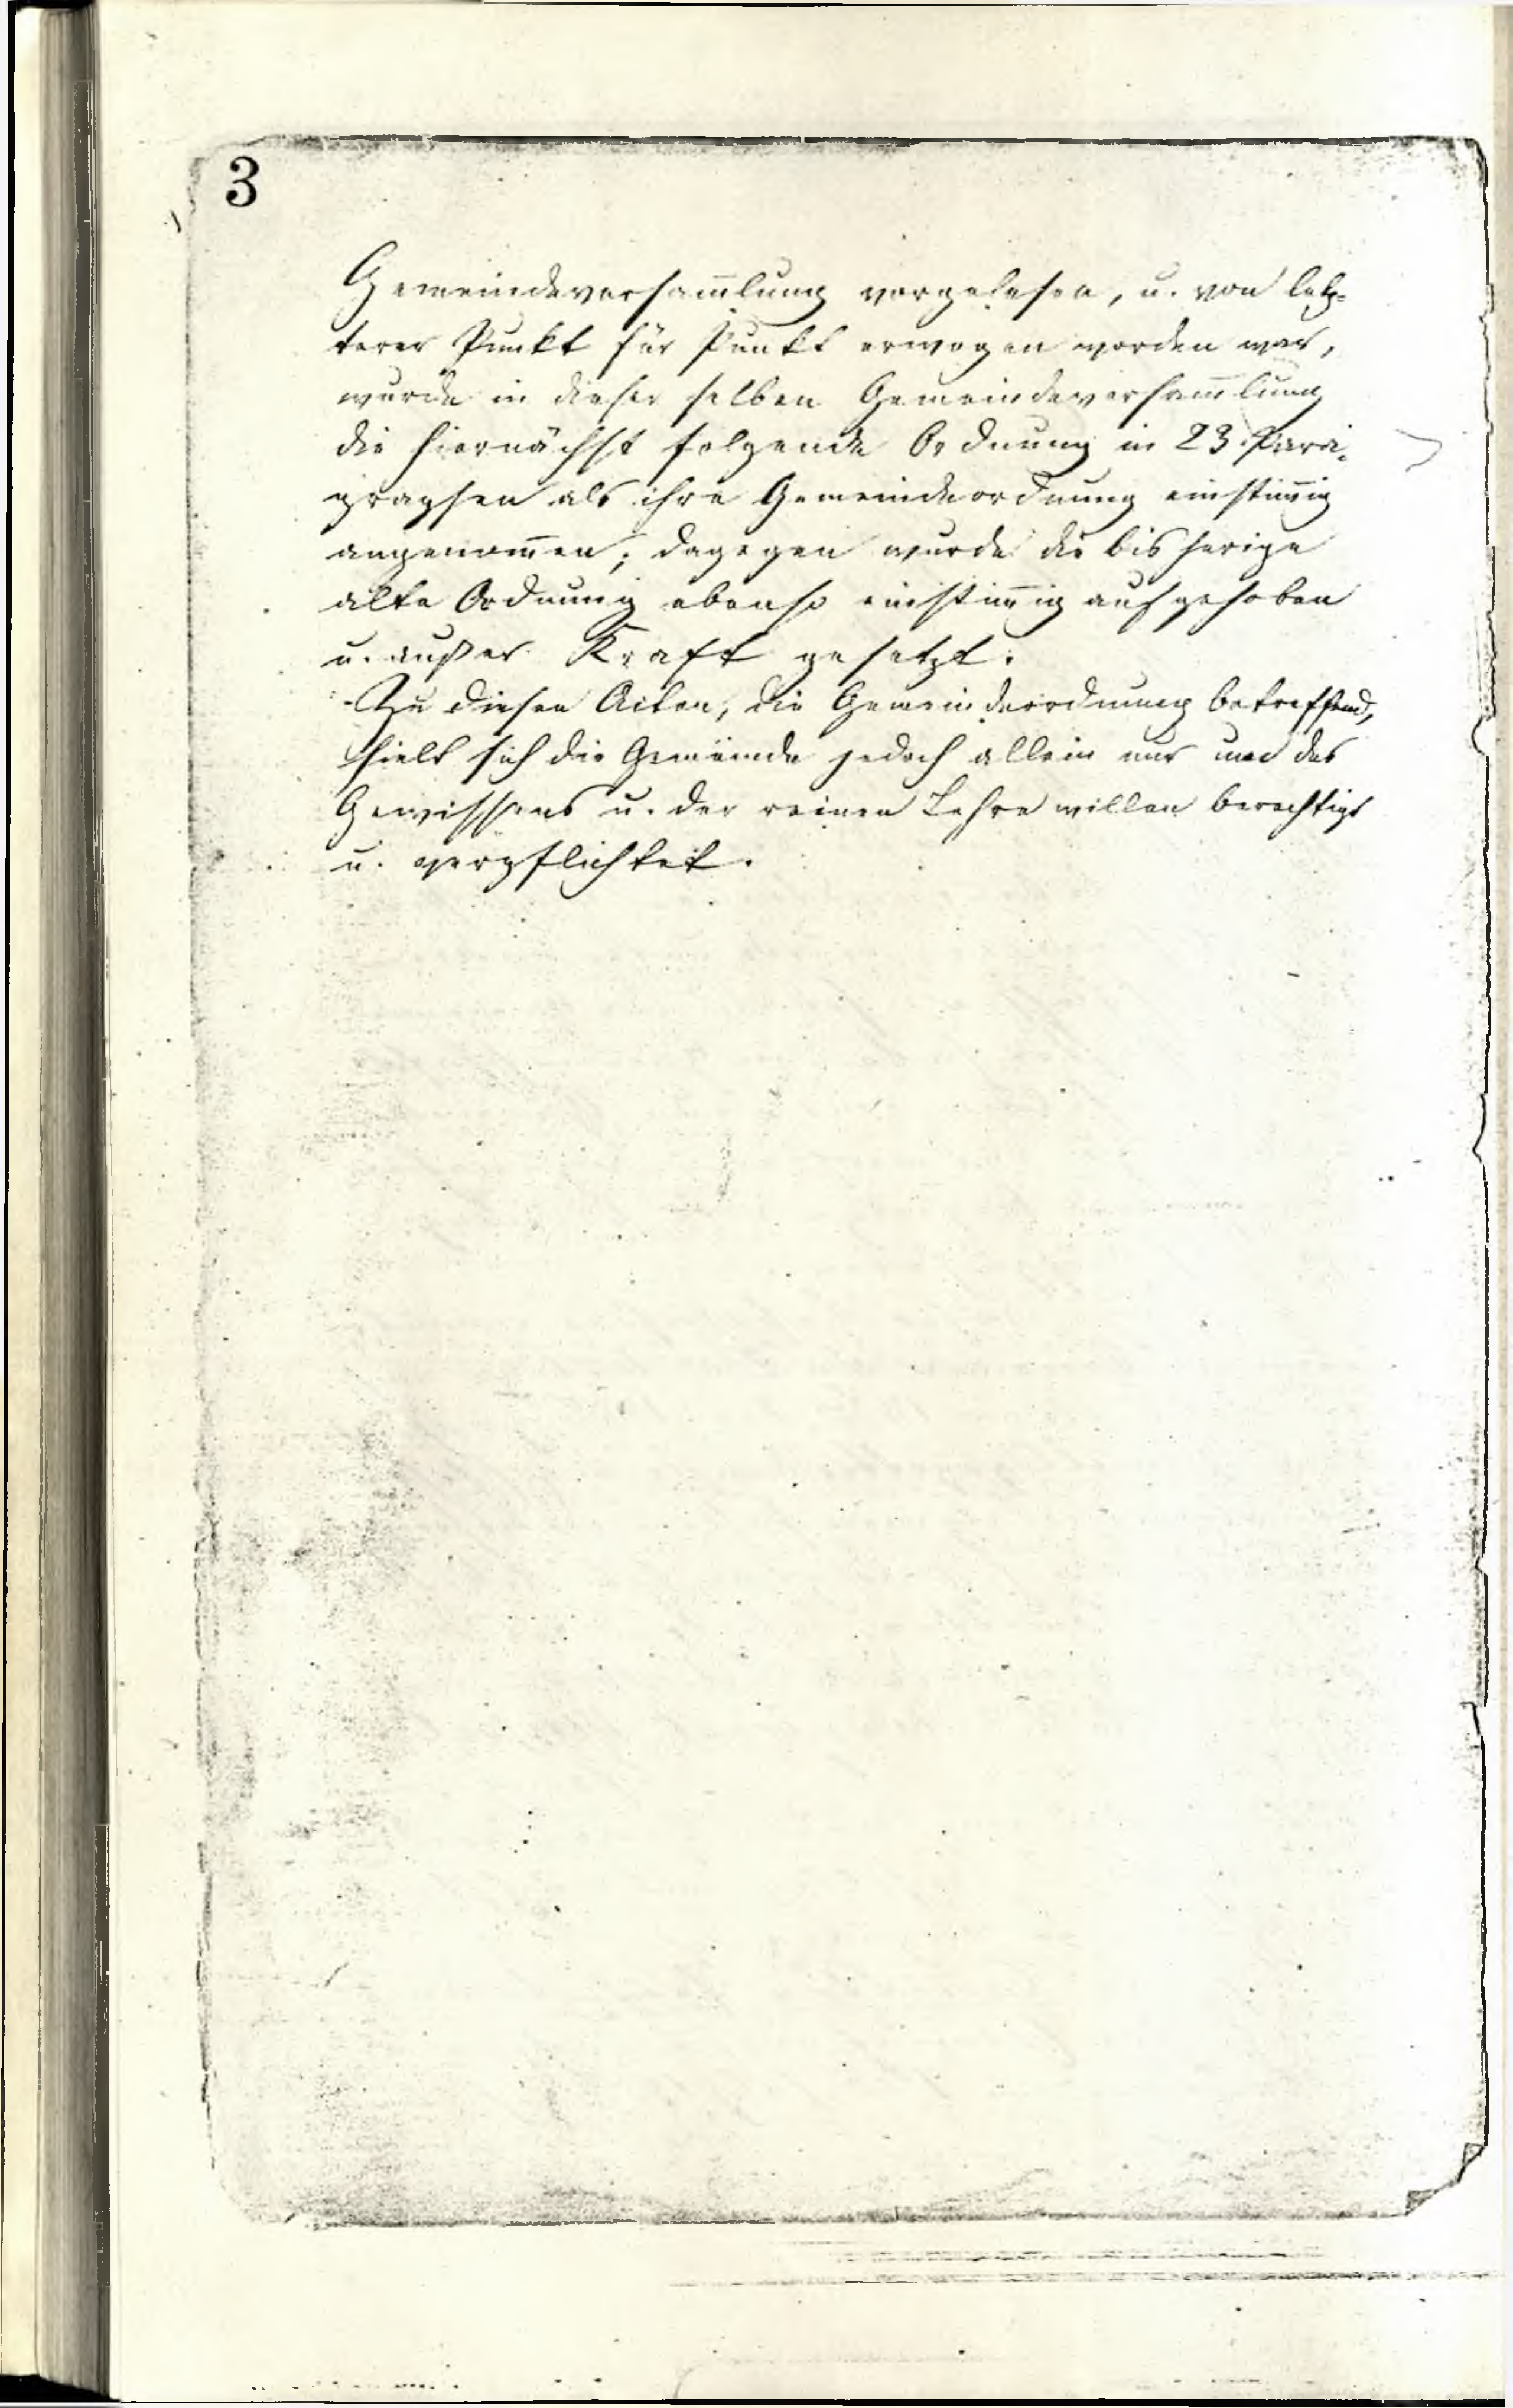 3
Gemeindeversam̄lung vorgelesen, u. von letz-
terer Punkt für Punkt erwogen worden war,
wurde in dieser selben Gemeindeversam̄lung
die hiernächst folgende Ordnung in 23 Para-
graphen als ihre Gemeindeordnung einstim̄ig
angenom̄en; dagegen wurde die bisherige
alte Ordnung ebenso einstim̄ig aufgehoben
u. außer Kraft gesetzt.
Zu diesen Acten, die Gemeindeordnung betreffend,
hielt sich die Gemeinde jedoch allein nur um des
Gewissens u. der reinen Lehre willen berechtigt
u. verpflichtet.